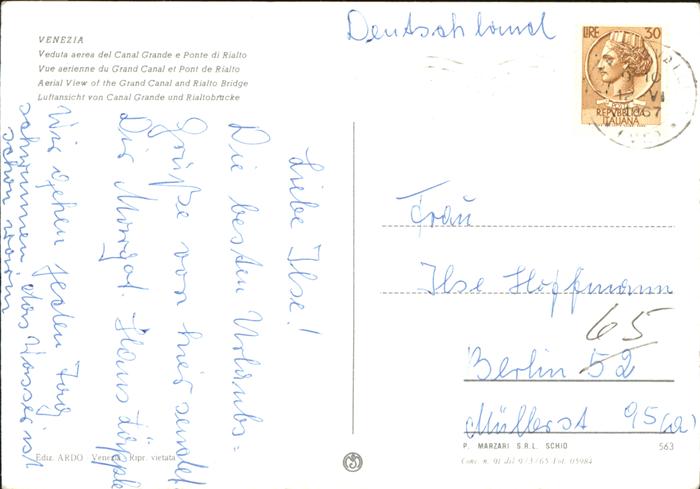 VENEZIA
Veduta aerea del Canal Grande e Ponte di Rialto
Vue aerienne du Grand Canal et Pont de Rialto
Aerial View of the Grand Canal and Rialto Bridge
Luftansicht von Canal Grande und Rialtobrucke
Deutschland
LIRE 30
POSTE
REPVBBLICA
ITALIANA
Liebe Ilse!
Die besten Urlaubs=
Grüße von hier sendet
Dir Margot. Hans
Wir gehen jeden Tag
schwimmen, das Wasser ist
schon warm
Frau
Ilse Hoffmann
65
Berlin 52
Müllerst 95(a)
Ediz. ARDO Venezia Ripr. vietata
P. MARZARI S.R.L. SCHIO
563
Conc. n. 91 dil 9/3/65-Fot. 05984